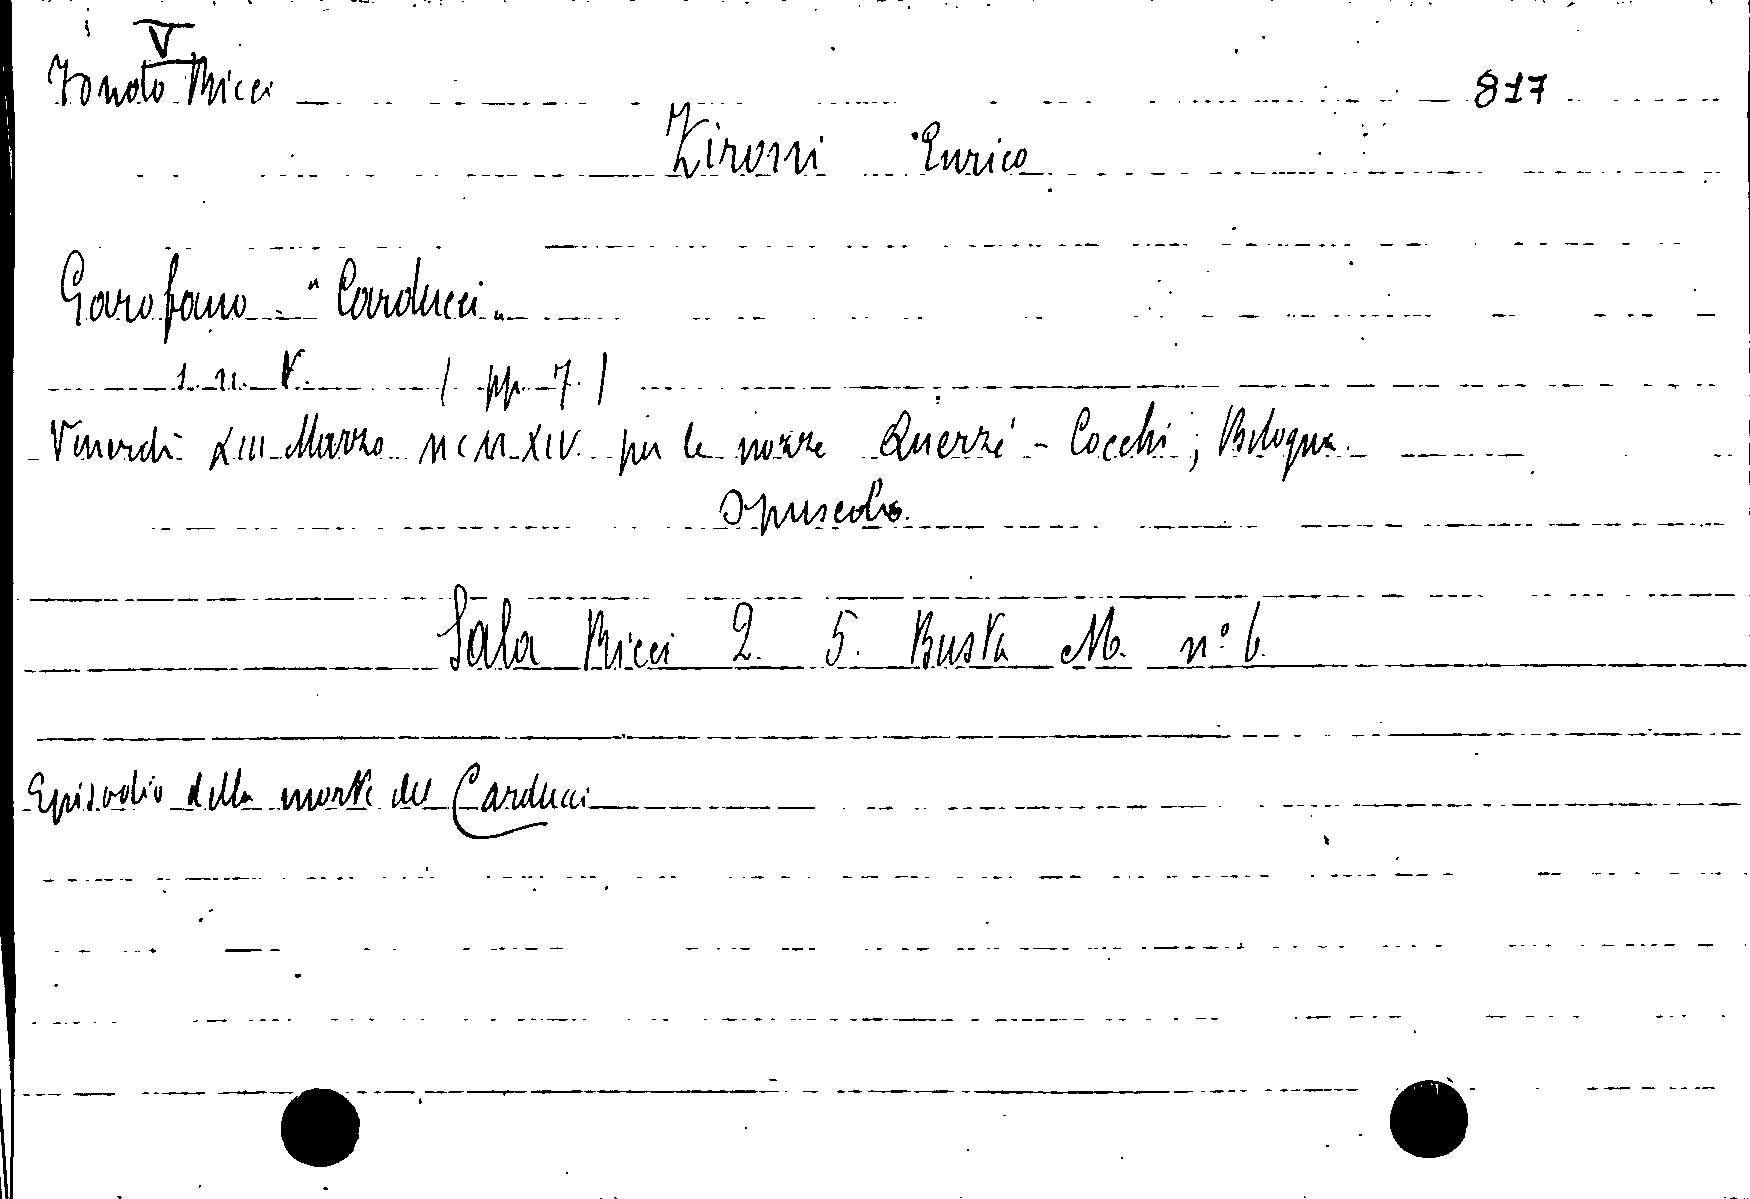 V
Fondo Ricci 817
Zironi Enrico
Garofano "Carducci"
s. n. t. ( pp. 7. )
Venerdì XIII Marzo MCMXIV per le nozze Querzé - Cocchi ; Bologna.
Opuscolo.
Sala Ricci 2. 5. Busta M. n° 6.
Episodio della morte del Carducci